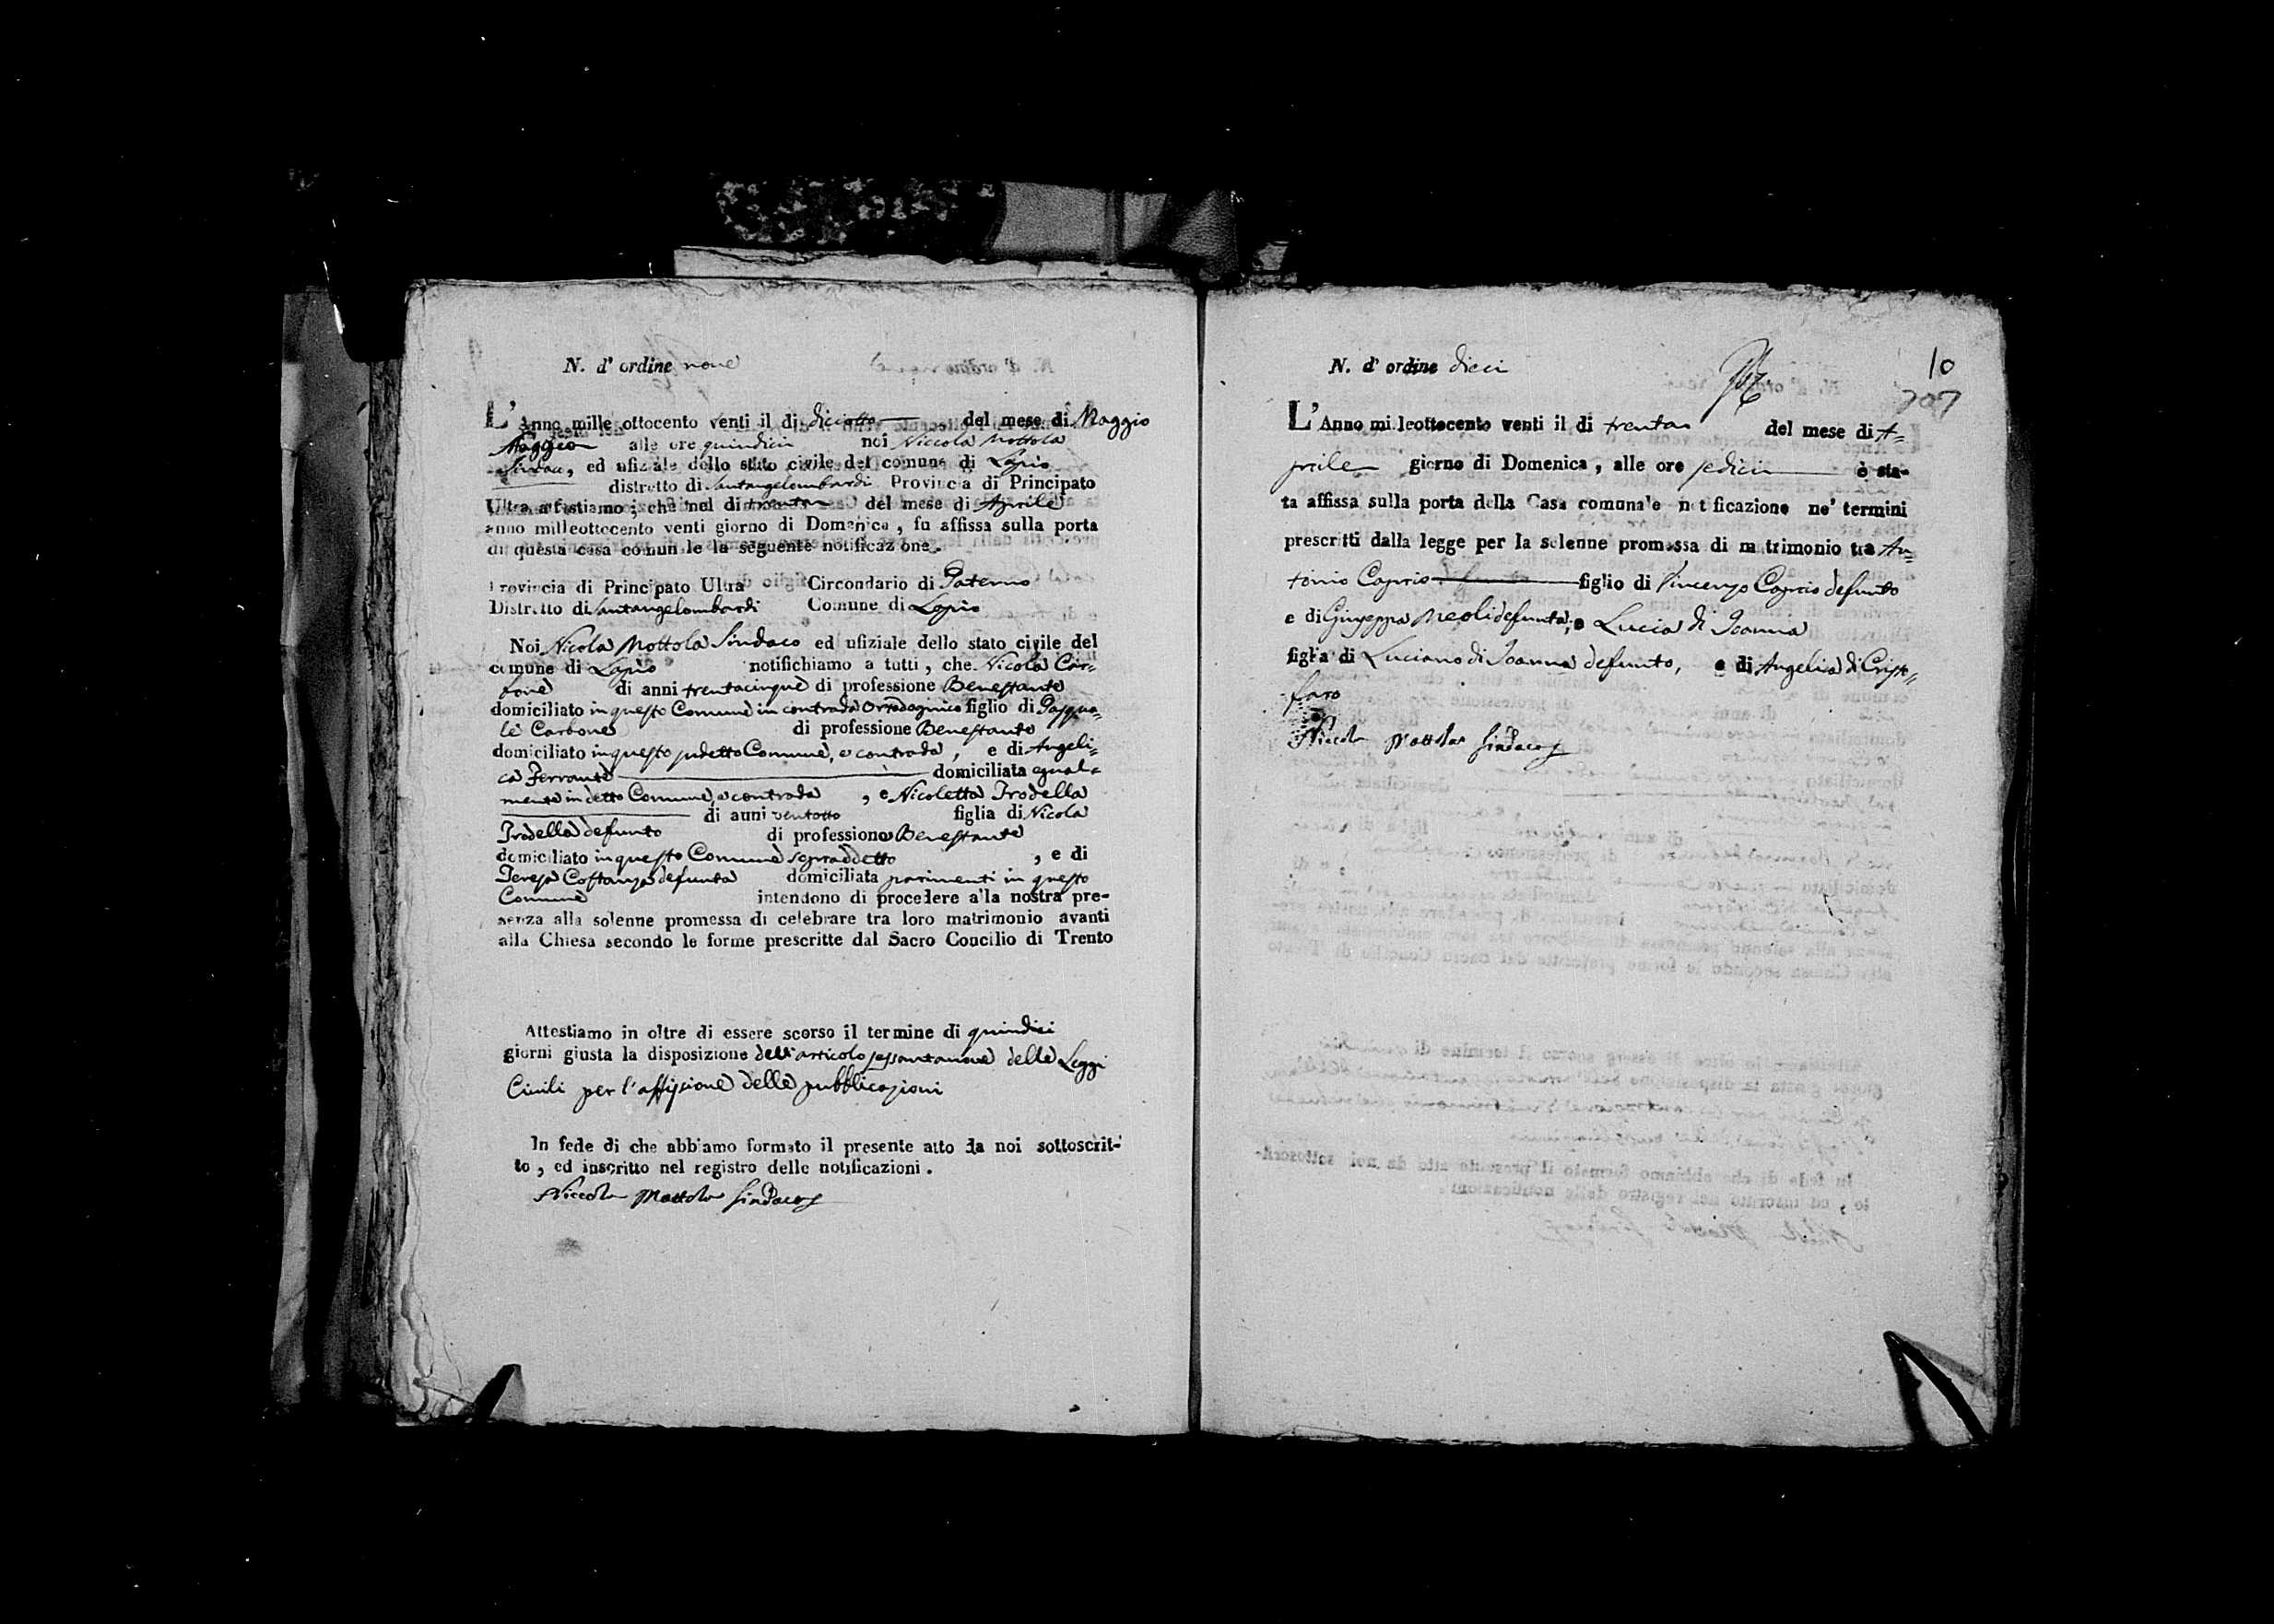 N. d' ordine nove
L'Anno mille ottocento venti il di diciotto del mese di Maggio
Maggio alle ore quindici noi Niccola Mottola
Sindaco, ed ufiziale dello stato civile del comune di Lapio
distretto di Santangelombardi Provincia di Principato
Ultra attestiamo; che nel di trenta del mese di Aprile
anno milleottocento venti giorno di Domenica, fu affissa sulla porta
di questa casa comunale la seguente notificazione.
Provincia di Principato Ultra Circondario di Paterno
Distretto di Santangelombardi Comune di Lapio
Noi Nicola Mottola Sindaco ed ufiziale dello stato civile del
comune di Lapio notifichiamo a tutti, che Nicola Car=
bone di anni trentacinque di professione Benestante
domiciliato in questo Comune in contrada figlio di Pasqua=
le Carbone di professione Benestante
domiciliato in questo sudetto Comune, e contrada, e di Angeli=
ca Ferrante domiciliata egual=
mente in detto Comune, e contrada, e Nicoletta Trodella
di anni ventotto figlia di Nicola
Trodella defunto di professione Benestante
domiciliato in questo Comune sopraddetto, e di
Teresa Costanza defunta domiciliata parimenti in questo
Comune intendono di procedere alla nostra pre-
senza alla solenne promessa di celebrare tra loro matrimonio avanti
alla Chiesa secondo le forme prescritte dal Sacro Concilio di Trento
Attestiamo in oltre di essere scorso il termine di quindici
giorni giusta la disposizione dell'articolo sessantanove delle Leggi
Civili per l'affissione delle pubblicazioni
In fede di che abbiamo formato il presente atto da noi sottoscrit-
to, ed inscritto nel registro delle notificazioni.
Niccola Mottola Sindaco
N. d' ordine dieci
10
707
L'Anno milleottocento venti il di trenta del mese di A=
prile giorno di Domenica, alle ore sedici è sta-
ta affissa sulla porta della Casa comunale notificazione ne' termini
prescritti dalla legge per la solenne promessa di matrimonio tra An=
tonio Caprio figlio di Vincenzo Caprio defunto
e di Giuseppa Meoli defunta; e Lucia di Joanna
figlia di Luciano di Joanna defunto, e di Angelica di Cristo=
faro
Niccola Mottola Sindaco